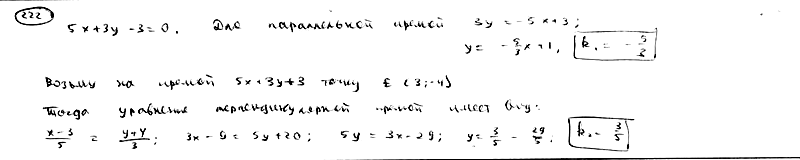 222
5x+3y-3=0. Для параллельной прямой 3y=-5x+3;
y= -5/3x+1, k₁ = -5/3
Возьму на прямой 5x+3y+3 точку E (3;-4)
Тогда уравнение перпендикулярной прямой имеет вид:
x-3/5 = y+4/3; 3x-9=5y+20; 5y=3x-29; y=3/5 - 29/5. k₂ = 3/5